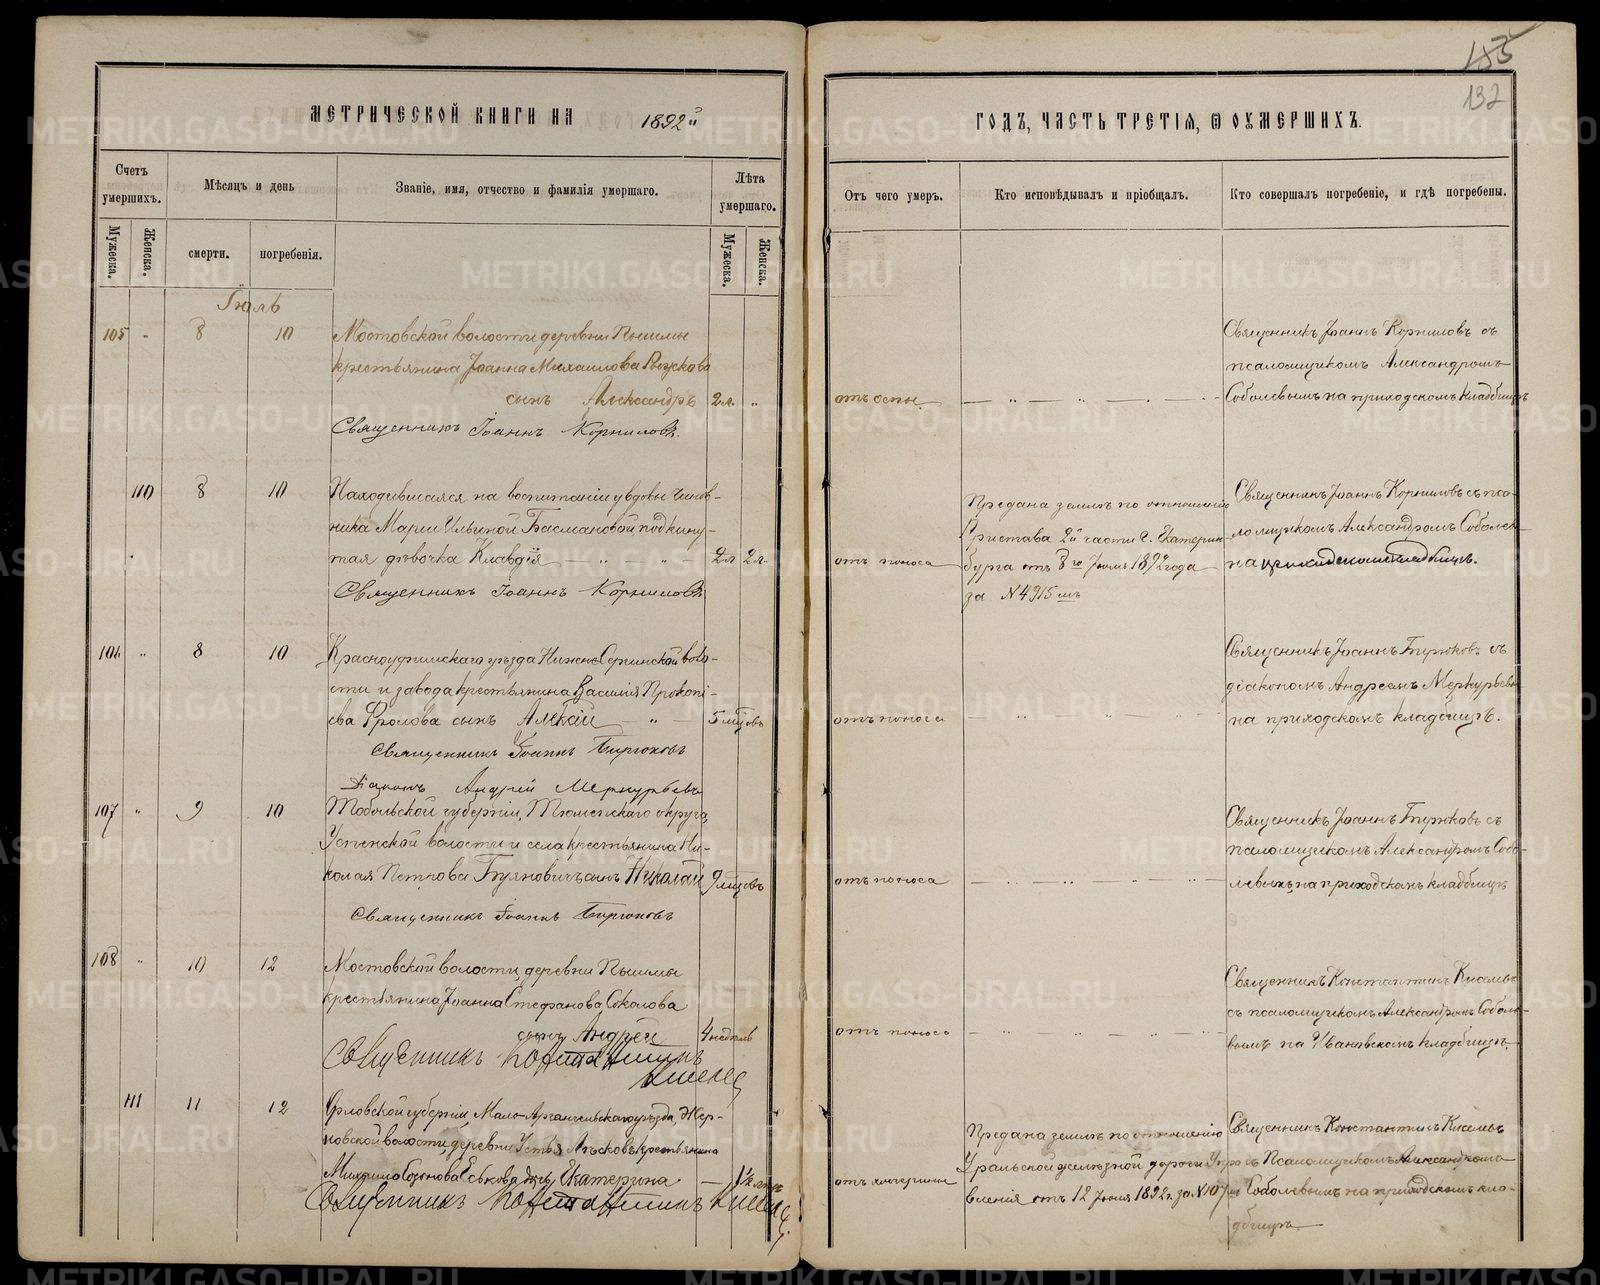 185
132
МЕТРИЧЕСКОЙ КНИГИ НА 1892й
ГОДЪ, ЧАСТЬ ТРЕТІЯ, Ѿ ОУМЕРШИХЪ.
Счетъ умершихъ.
Мѣсяцъ и день
Званіе, имя, отчество и фамилія умершаго.
Лѣта умершаго.
Отъ чего умеръ.
Кто исповѣдывалъ и пріобщалъ.
Кто совершалъ погребеніе, и гдѣ погребены.
Мужеска.
Женска.
смерти.
погребенія.
Мужеска.
Женска.
Іюль
105 " 8 10
Мостовской волости деревни Пышмы
крестьянина Іоанна Михаилова
сынъ Александръ 2 л. "
Священникъ Іоаннъ Корниловъ.
отъ оспы.
Священникъ Іоаннъ Корниловъ съ
псаломщикомъ Александромъ
Соболевымъ на приходскомъ кладбищѣ
110 8 10
Находившаяся на воспитаніи у вдовы чинов-
ника Маріи Ильиной Басмановой, подкину-
тая дѣвочка Клавдія 2 л 2 л.
Священникъ Іоаннъ Корниловъ
отъ поноса
Предана землѣ по отношенію
Пристава 2й части г. Екатерин-
бурга отъ 8го Іюля 1892 года
за N 4915
Священникъ Іоаннъ Корниловъ съ пса-
ломщикомъ Александромъ Соболев
на приходскомъ кладбищѣ.
106 " 8 10
Красноуфимскаго уѣзда Нижне Сергинской воло-
сти и завода крестьянина Василія Прокопі-
ева Фролова сынъ Алексѣй 5 мѣсяцовъ
Священникъ Іоаннъ Бирюковъ
Діаконъ Андрей Меркурьевъ
отъ поноса
Священникъ Іоаннъ Бирюковъ съ
діакономъ Андреемъ Меркурьевы
на приходскомъ кладбищѣ.
107 " 9 10
Тобольской губерніи, Тюменскаго округа,
Успенской волости и села крестьянина Ни-
колая Петрова сынъ Николай 9 мѣсяцевъ
Священникъ Іоаннъ Бирюковъ
отъ поноса
Священникъ Іоаннъ Бирюковъ съ
псаломщикомъ Александромъ Собо-
левымъ, на приходскомъ кладбищѣ
108 " 10 12
Мостовской волости, деревни Пышмы
крестьянина Іоанна Стефанова Соколова
сынъ Андрей 4 недѣль
Священникъ Константинъ
Киселев
отъ поноса
Священникъ Константинъ Киселевъ
съ псаломщикомъ Александромъ Соболе-
вымъ на Ивановскомъ кладбищѣ.
111 11 12
Орловской губерніи, Мало-Архангельскаго уѣзда, Жер-
новской волости, деревни Устья Лѣсковъ крестьянина
дочь Екатерина 1½ лѣтъ
Священникъ Константинъ Киселев
отъ
Предана землѣ по отношенію
Уральской желѣзной дороги Упра-
вленія отъ 12 Іюля 1892 г. за N 107
Священникъ Константинъ Киселевъ
съ Псаломщикомъ Александромъ
Соболевымъ на приходскомъ кла-
дбищѣ.